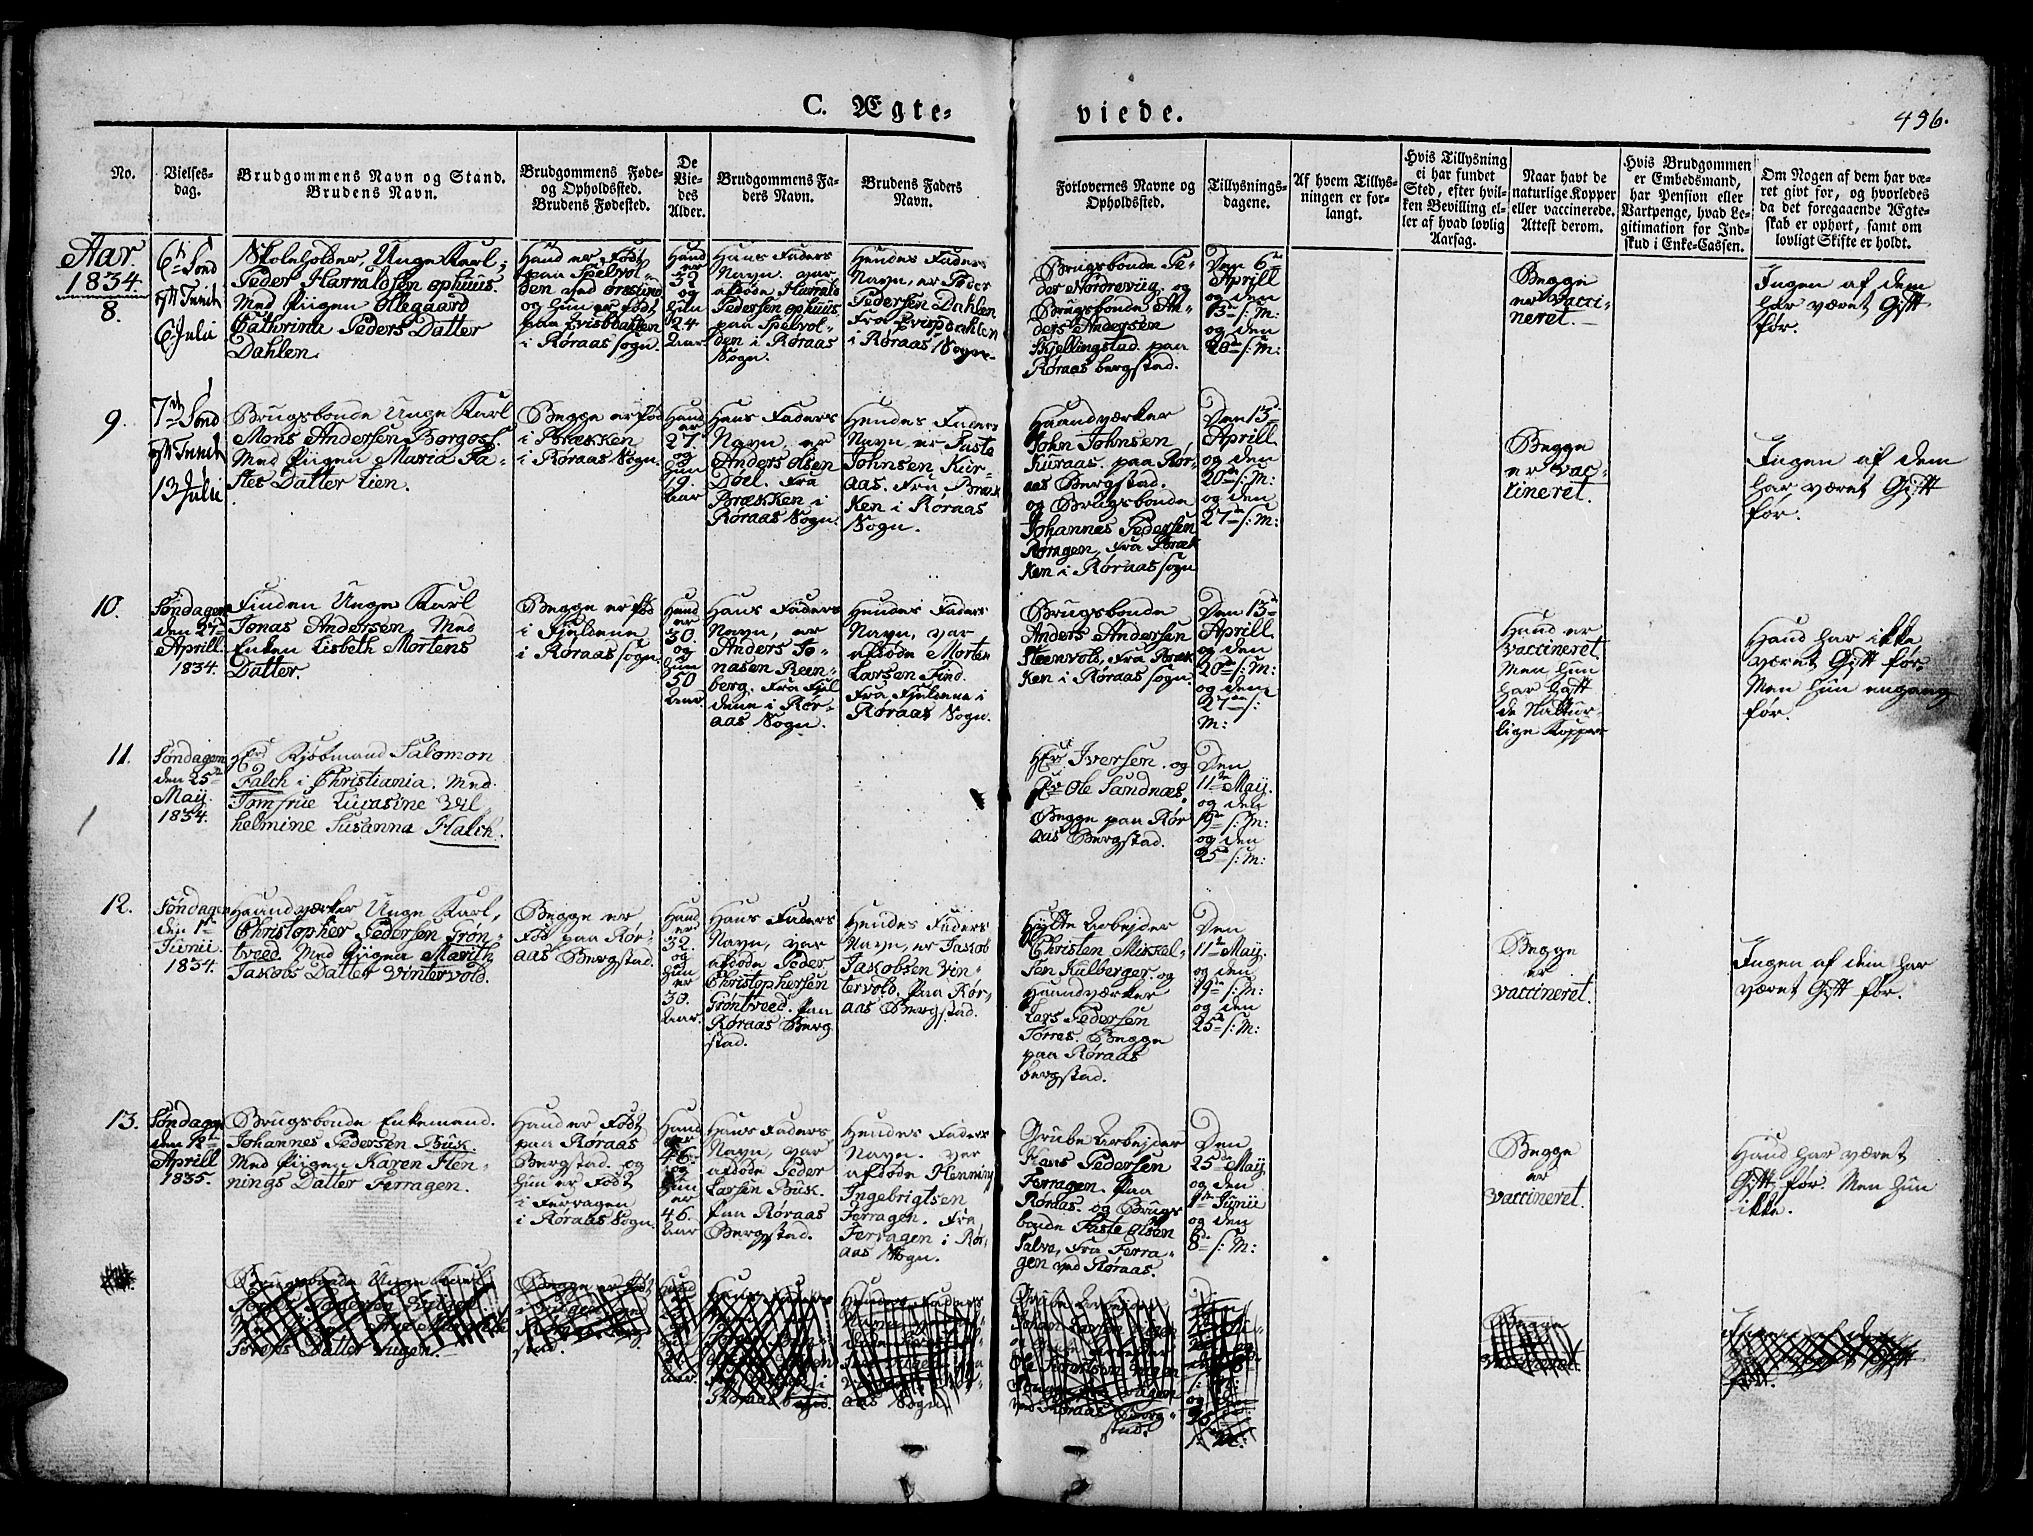 C. Ægte-
viede.
496.
No.
Vielses-
dag.
Brudgommens Navn og Stand.
Brudens Navn.
Brudgommens Føde-
og Opholdssted.
Brudens Fødested.
De
Vie-
des
Alder.
Brudgommens Fa-
ders Navn.
Brudens Faders
Navn.
Forlovernes Navne og
Opholdssted.
Tillysnings-
dagene.
Af hvem Tillys-
ningen er for-
langt.
Hvis Tillysning
ei har fundet
Sted, efter hvil-
ken Bevilling el-
ler af hvad lovlig
Aarsag.
Naar havt de
naturlige Kopper
eller vaccinerede.
Attest derom.
Hvis Brudgommen
er Embedsmand,
har Pension eller
Vartpenge, hvad Le-
gitimation for Ind-
skud i Enke-Cassen.
Om Nogen af dem har væ-
ret givt før, og hvorledes
da det foregaaende Ægte-
skab er ophørt, samt om
lovligt Skifte er holdt.
Aar
1834.
8.
6te Sønd
eft Trinit
6 Julii
Skoleholder, Unge Karl,
Peder Harraldsen ophuus.
Med Piigen Ollegaard
Cathrina Peders Datter
Dahlen.
Hand er Født
paa Spelvol-
den ved
og Hun er født
paa Evisdallen
i Røraas Sogn.
Hand
er
32
og
Hun
24
Aar
Hans Faders
Navn. var
afdøde Harrald
Pedersen ophuus.
paa Spelvol-
den i Røraas
Sogn.
Hendes Faders
Navn. er Peder
Pedersen Dahlen
Fra Evisdahlen
i Røraas Sogn
Brugsbonde Pe-
der Nordrevüg. og
Brugsbonde An-
ders Andersen
Skjellingstad. paa
Røraas bergstad.
Den 6te
Aprill
og den
13de s: M:
og den
20de s: M:
Begge
er vacci-
neret.
Ingen af dem
har været Gift
før.
9.
7de Sønd
eft Trinit
13 Julii
Brugsbonde Unge Karl
Mons Andersen Borgos.
Med Piigen Maria Fa-
stes Datter Lien.
Begge er Fød
i Brækken
i Røraas Sogn.
Hand
er
27.
og
Hun
19.
Aar
Hans Faders
Navn, er
Anders Olsen
Døel. Fra
Brækken i
Røraas Sogn.
Hendes Faders
Navn er Faste
Johnsen Kur-
aas. Fra Bræk
ken i Røraas
Sogn.
Haandværker
John Johnsen
Kuraas. paa Rør-
aas Bergstad.
og Brugsbonde
Johannes Pedersen
Røragen, Fra Bræk
ken i Røraas sogn
Den 13de
Aprill
og den
20de s: M:
og den
27de s: M:
Begge
er vac-
cineret.
Ingen af dem
har været Gift
før.
10.
Søndagen
den 27de
Aprill.
1834.
Finden Unge Karl
Jonas Andersen, Med
Enken Lisbeth Mortens
Datter.
Begge er fød
i Fjeldene
i Røraas sogn.
Hand
er
30.
og
Hun
50
Aar.
Hans Faders
Navn, er
Anders Jo-
nasen Reen-
berg. Fra Fjel
dene i Rør-
aas Sogn.
Hendes Faders
Navn, var
afdøde Morten
Larsen Find.
Fra Fjeldene i
Røraas Sogn.
Brugsbonde
Anders Andersen
Steenvold, Fra Bræk
ken i Røraas sogn.
Den 13de
Aprill.
og den
20de s: M:
og den
27de s:
M:
Hand er
vaccineret
Men Hun
har Haft
de Nattur-
lige Kopper
Hand har ikke
været Gift før.
Men Hun engang
før.
11.
Søndagen
den 25de
May.
1834.
Hr Kjøbmand Salomon
Falch i Christiania. Med
Jomfrue Lucasine Vil-
helmine Susanna Falch.
Hr Iversen. og
Hr Ole Sandnæs,
Begge paa Rør
aas Bergstad.
Den
11te May.
og den
19de s: M:
og den
25de s: M:
12.
Søndagen
den 1ste
Junii
1834.
Haandværker Unge Karl,
Christopher Pedersen Grøn-
tveed. Med Piigen Marith
Jakobs Datter Vintervold.
Begge er
Fød paa Rør-
aas Bergstad.
Hand
er
32.
og
Hun
er
30.
Aar.
Hans Faders
Navn, var
afdøde Peder
Christophersen
Grøntveed. paa
Røraas Berg
stad.
Hendes Faders
Navn, er Jakob
Jakobsen Vin-
tervold. paa Rør,
aas Bergstad.
Hytte Arbejder
Christen Mikkel-
sen Kulberger. og
Haandværker
Lars Pedersen
Torres. Begge
paa Røraas
bergstad.
Den
11te May.
og den
19de s: M:
og den
25de s: M:
Begge
er
vaccineret.
Ingen af dem har
været Gift før.
13.
Søndagen
den 12te
Aprill
1835.
Brugsbonde Enkemand.
Johannes Pedersen Buk.
Med Piigen Karen Hen-
nings Datter Ferragen.
Hand er Født
paa Røraas
Bergstad. og
Hun er Født
i Ferragen
i Røraas Sogn.
Hand
er
46.
og
Hun
er
46.
Aar
Hans Faders
Navn, var
afdøde Peder
Larsen Buk.
paa Røraas
Bergstad.
Hendes Faders
Navn. var
afdøde Henning
Ingebrigtsen
Ferragen. Fra
Ferragen i Rør,
aas Sogn.
Grube Arbejder
Hans Pedersen
Ferragen. paa
Røraas. og Brugs
bonde Faste Olsen
Salve, Fra Ferra-
gen ved Røraas.
Den
25de May.
og den
1ste Junii
og den
8de s: M:
Begge
er
vaccineret.
Hand har været
Gift før. Men Hun
ikke.
Brugsbonde Unge Karl
Datter
Begge er fød
stad.
Hans Faders
Røraas
Hendes Faders
aas Sogn.
Grube Arbejder
ved Røraas Berg-
stad.
Begge